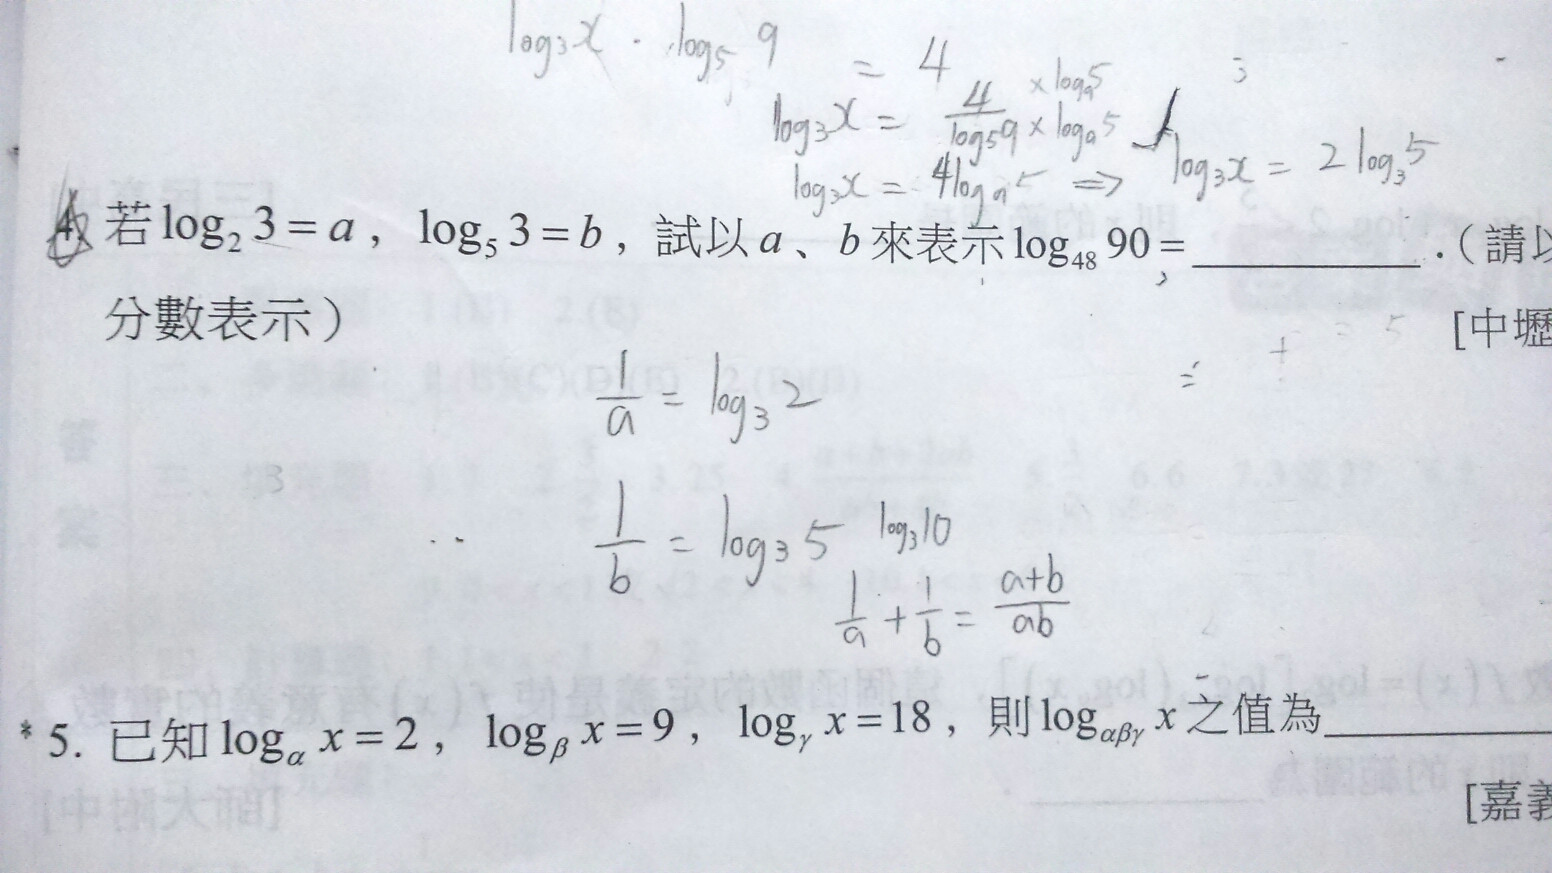 log₃x · log₅9 = 4
log₃x = 4/log₅9 × log₉5 × log₉5
log₃x = 4log₉5 ⇒ log₃x = 2log₃5
4. 若 log₂ 3 = a，log₅ 3 = b，試以 a、b 來表示 log₄₈ 90 = ________ .（請以
分數表示）
[中壢
1/a = log₃ 2
1/b = log₃ 5 log₃10
1/a + 1/b = (a+b)/ab
*5. 已知 log_α x = 2，log_β x = 9，log_γ x = 18，則 log_αβγ x 之值為________
[嘉義